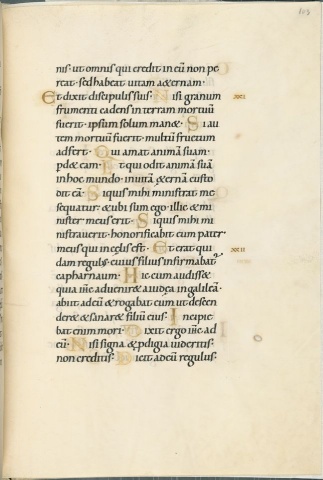 nis· ut omnis qui credit in eū non pe
reat· sed habeat uitam æternam·
Et dixit discipulis suis· Nisi granum
frumenti cadens in terram mortuū
fuerit· ipsum solum manet· Si au
tem mortuū fuerit· multū fructum
adfert· Qui amat animā suam·
pdet eam· Et qui odit animā suā
in hoc mundo· in uitā æternā custo
dit eā· Siquis mihi ministrat me
sequatur· & ubi sum ego· illic & mi
nister meus erit· Siquis mihi mi
nistrauerit· honorificabit eum pater
meus qui in cęlis est· Et erat qui
dam regulus cuius filius infirmabat
capharnaum· Hic cum audisset
quia ihc aduenir& a iudea in galileā·
abiit ad eū & rogabat eum ut descen
deret & sanar& filiū eius· Incipie
bat enim mori· Dixit ergo ihc ad
eū· Nisi signa & pdigia uideritis·
non creditis· Dicit ad eū regulus·
xxii